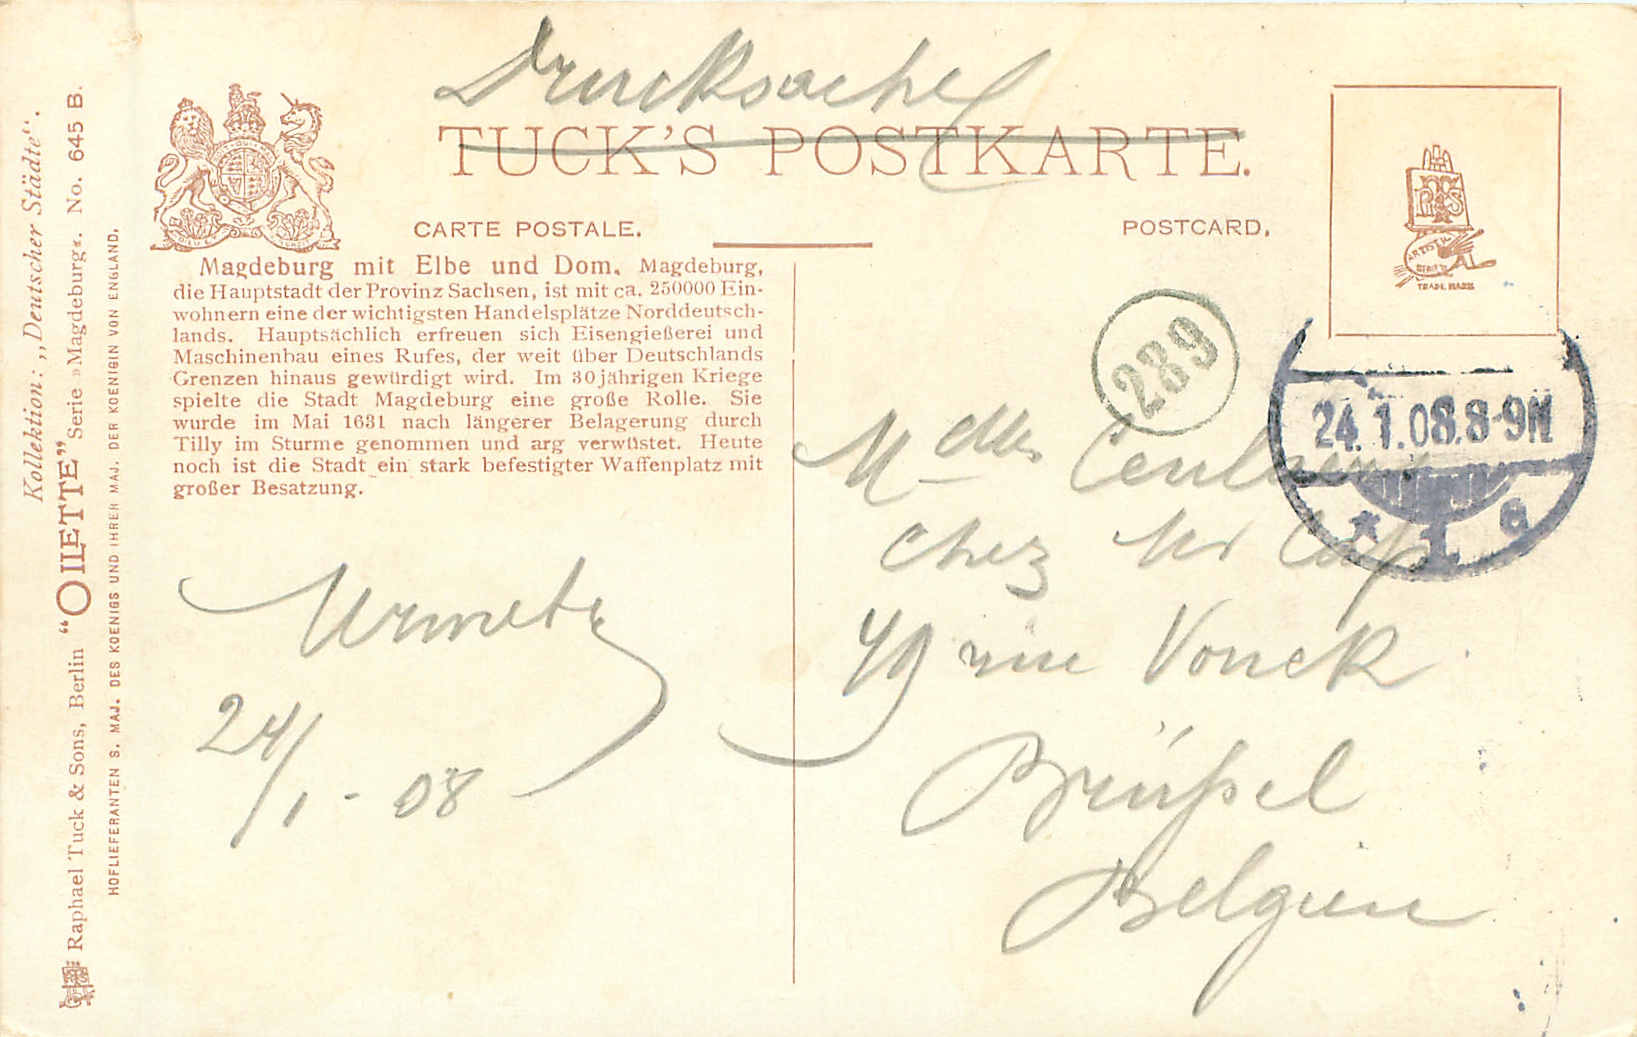 Drucksache
TUCK'S POSTKARTE.
CARTE POSTALE.
POSTCARD.
Magdeburg mit Elbe und Dom. Magdeburg,
die Hauptstadt der Provinz Sachsen, ist mit ca. 250000 Ein-
wohnern eine der wichtigsten Handelsplätze Norddeutsch-
lands. Hauptsächlich erfreuen sich Eisengießerei und
Maschinenbau eines Rufes, der weit über Deutschlands
Grenzen hinaus gewürdigt wird. Im 30jährigen Kriege
spielte die Stadt Magdeburg eine große Rolle. Sie
wurde im Mai 1631 nach längerer Belagerung durch
Tilly im Sturme genommen und arg verwüstet. Heute
noch ist die Stadt ein stark befestigter Waffenplatz mit
großer Besatzung.
24/1-08
Kollektion: „Deutscher Städte“.
Raphael Tuck & Sons, Berlin “OILETTE” Serie »Magdeburg«. No. 645 B.
HOFLIEFERANTEN S. MAJ. DES KOENIGS UND IHRER MAJ. DER KOENIGIN VON ENGLAND.
ARTISTIC
SERIES
TRADE MARK
239
24.1.08.8-9N
* 1 e
Mdlles
chez Mr
49 rue Vonck
Brüßel
Belgien